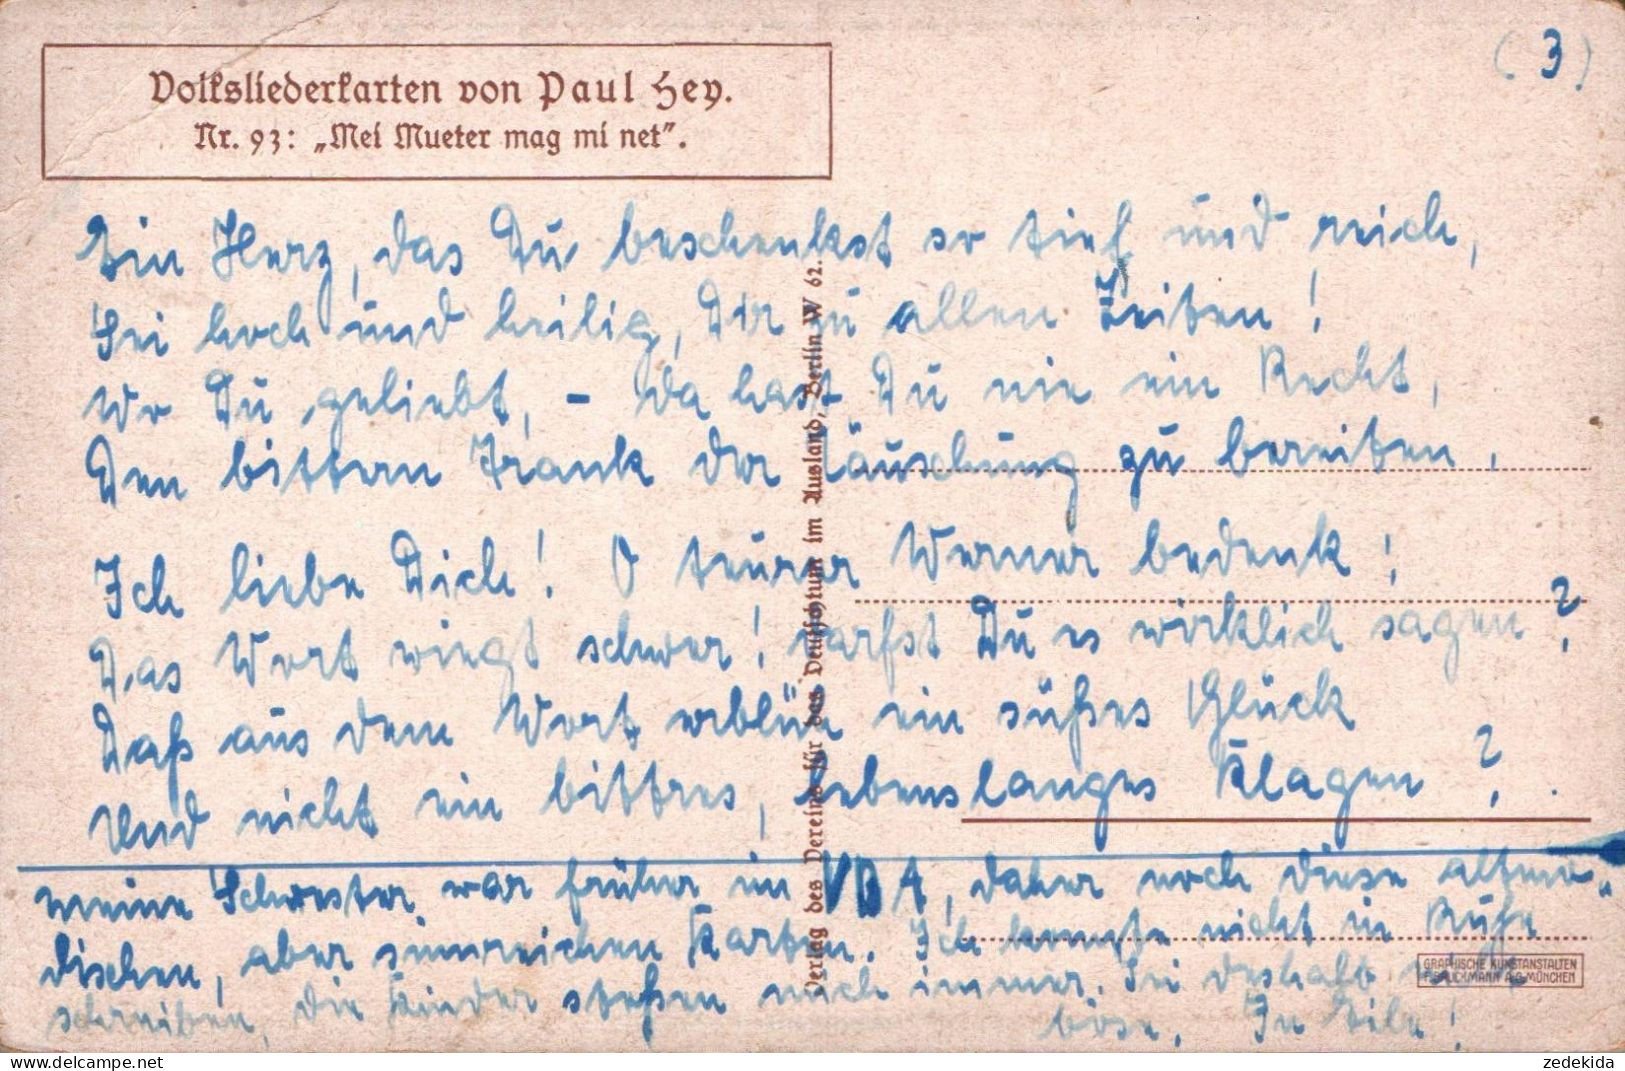 (3)
Volksliederkarten von Paul Hey.
Nr. 93: „Mei Mueter mag mi net".
Ein Herz, das Du beschenkst so tief und reich,
Sei hoch und heilig, Dir zu allen Zeiten!
Wo Du geliebt, - da hast Du nie ein Recht,
Den bittern Trank der Täuschung zu bereiten.
Ich liebe Dich! O teurer Werner bedenk!
Das Wort wiegt schwer! darfst Du es wirklich sagen?
Daß aus dem Wort erblüh ein süßes Glück
Und nicht ein bittres, lebenslanges Klagen?
meine Schwester war früher im VDA, daher noch diese altmo-
dischen, aber sinnreichen Karten. Ich konnte nicht in Ruhe
schreiben, die Kinder stoßen mich immer. Sei deshalb nicht
böse. In Eile!
Verlag des Vereins für das Deutschtum im Ausland, Berlin W 62.
GRAPHISCHE KUNSTANSTALTEN
F. BRUCKMANN A.G. MÜNCHEN
zedekida